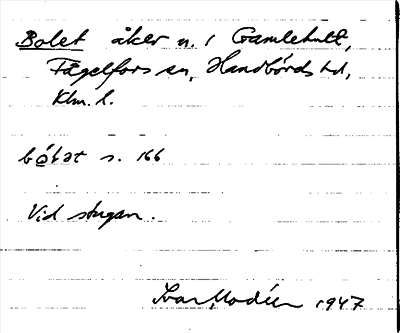 Bolet åker n. i Gamlehult,
Fågelfors sn, Handbörds hd,
Klm. l.
bo̲ĺət s. 166
Vid stugan.
Ivar Modéer 1947